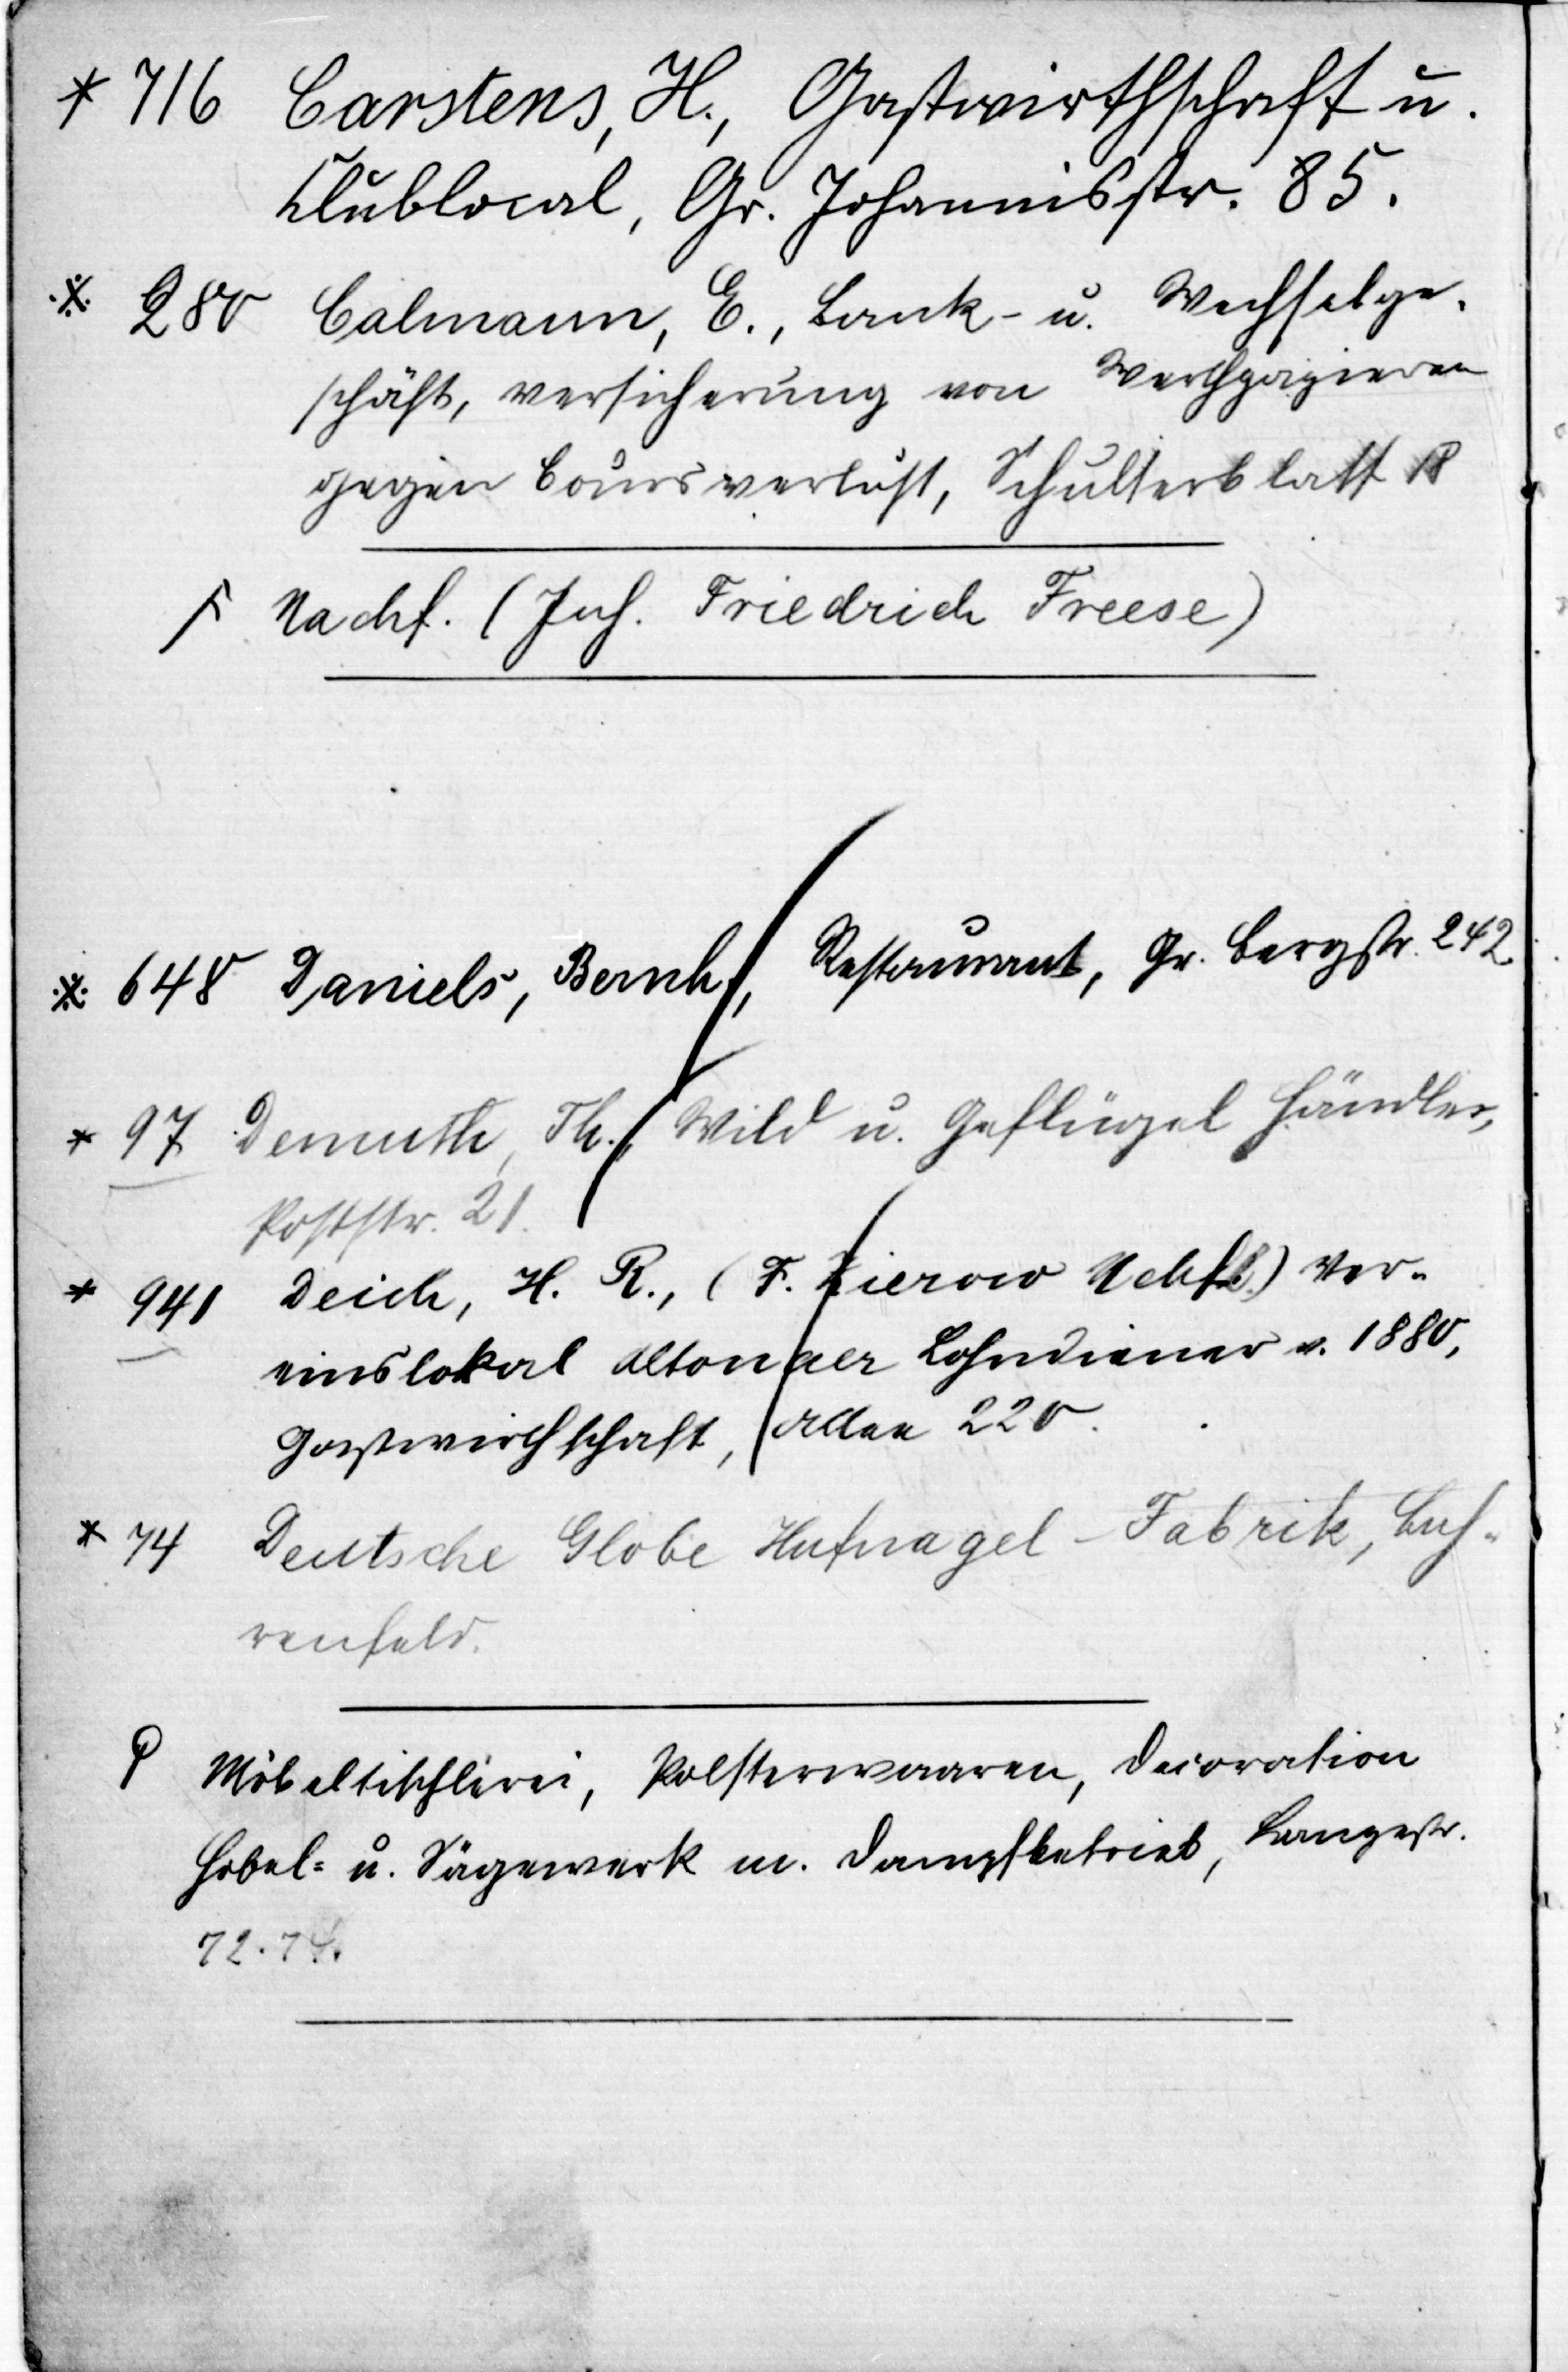 * 716 Carstens, H., Gastwirthschaft u.
Klublocal, Gr. Johannisstr. 85.
※ 280 Calmann, E., Bank- u. Wechselge-
schäft, Versicherung von Werthpapieren
gegen Coursverlust, Schulterblatt
Nachf. (Inh. Friedrich Freese)
※ 648 Daniels, Bernh., Restaurant, Gr. Bergstr. 242
* 97 Demuth, Th., Wild u. Geflügel Händler,
Poststr. 21.
* 941 Deich, H. R., (F. Zierow Nchfl.) Ver-
einslokal Altonaer Lohndiener v. 1880,
Gastwirthschaft, Allee 220.
* 74 Deutsche Globe Hufnagel-Fabrik, Bah-
renfeld.
Möbeltischlerei, Polsterwaaren, Decoration
Hobel- u. Sägewerk m. Dampfbetrieb, Langestr.
72.74.